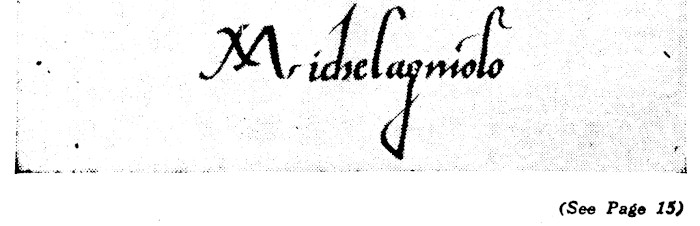 Michelagniolo
(See Page 15)